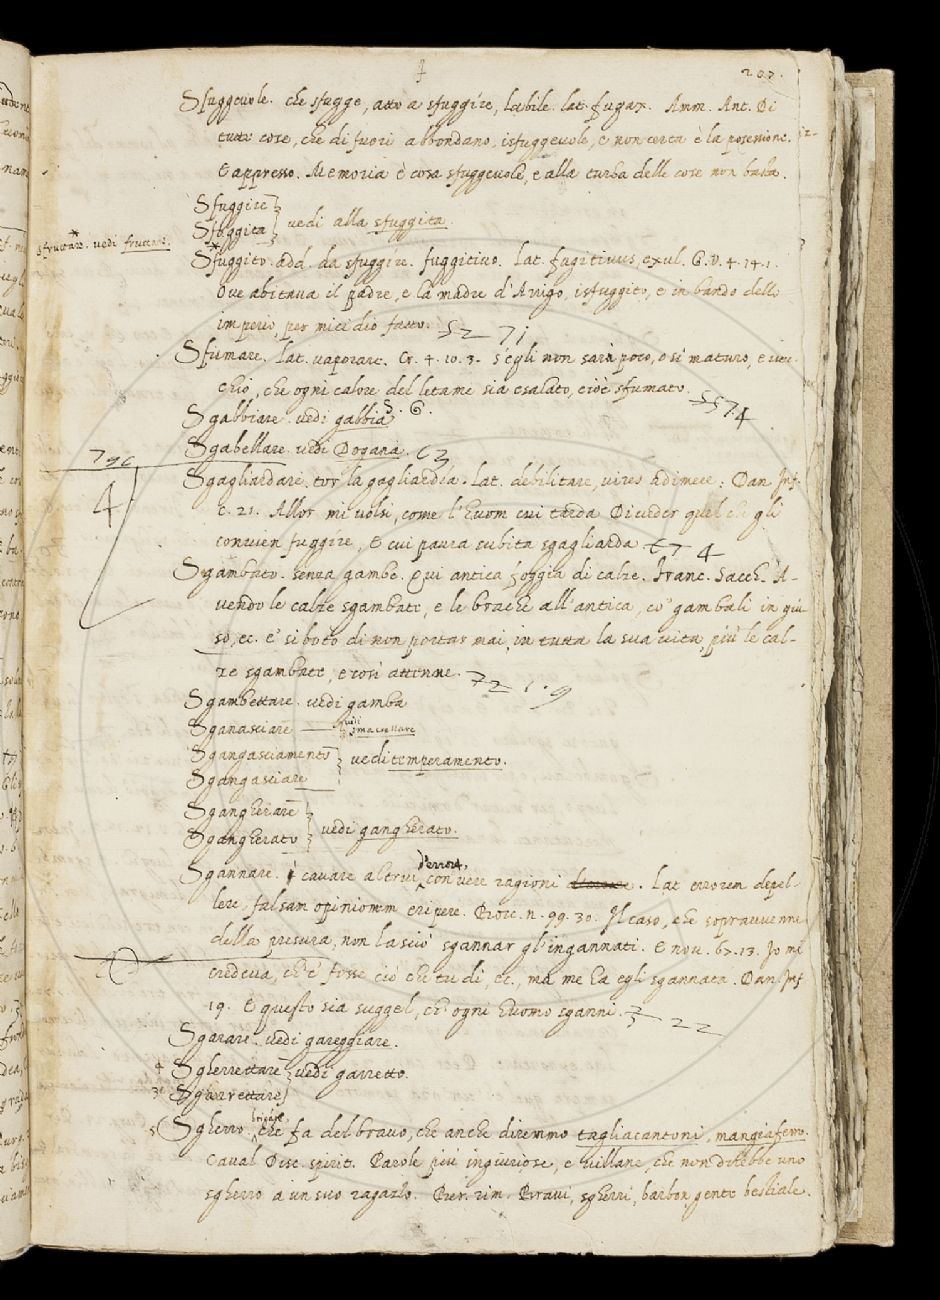 207.
Sfuggeuole. che sfugge, atto a sfuggire, labile. lat. fugax. Amm. Ant. Di
tutte cose, che di fuori abbondano, isfuggeuole, e non certa è la posessione.
E appresso. Memoria è cosa sfuggeuole, e alla turba delle cose non basta.
Sfuggire
Sfuggita } vedi alla sfuggita.
* sfruttare. vedi fruttare.
Sfuggito. add. da sfuggire. fuggitiuo. Lat. fugitiuus exul. G.V. 4. 14. 1.
Oue abitaua il padre, e la madre d'Arrigo, isfuggito, e in bando dello
imperio, per micidio fatto. 52 71
Sfumare, lat. vaporare. Cr. 4. 10. 3. s'egli non sarà poco, o sì maturo, e vec-
chio, che ogni calore del letame sia esalato, cioè sfumato. 5574
Sgabbiare. vedi gabbia. S. G.
Sgabellare. vedi Dogana. 63
796
4
Sgagliardare. tor la gagliardia. Lat. debilitare, vires adimere: Dan. Inf.
c. 21. Allor mi volsi, come l'huom cui tarda Di veder quel che gli
conuien fuggire, E cui paura subita sgagliarda 67 4
Sgambato. senza gambe. Qui antica foggia di calze. Franc. Sacch. A-
uendo le calze sgambate, e le brache all'antica, co' gambali in giù
so, ec. e si botò di non portar mai, in tutta la sua vita, più le cal-
ze sgambate, e così attenne. 72 1. 9
Sgambettare. vedi gamba
Sganasciare — vedi smascellare
Sgangasciamento
Sgangasciare } vedi temperamento.
Sgangherare
Sgangherato } vedi gangherato.
Sgannare. cauare altrui d'errore, con vere ragioni. Lat errorem depel-
lere, falsam opinionem eripere. Bocc. n. 99. 30. Il caso, che soprauuenne
della presura, non lasciò sgannar gl'ingannati. E nou. 67. 13. Io mi
credeua, ch'e' fosse ciò che tu di, ec., ma me ha egli sgannata. Dan. Inf
19. E questo sia suggel, ch'ogni huomo sganni. 3 22
Sgarare. vedi gareggiare.
4 Sgherrettare
3 Sgarrettare } vedi garretto.
5 Sgherro. brigante, che fa del brauo, che anche diremmo tagliacantoni, mangiaferro.
Caual. Disc. spirit. Parole più ingiuriose, e villane, che non direbbe uno
sgherro a un suo ragazzo. Ber. rim. Braui, sgherri, barbon, gente bestiale.